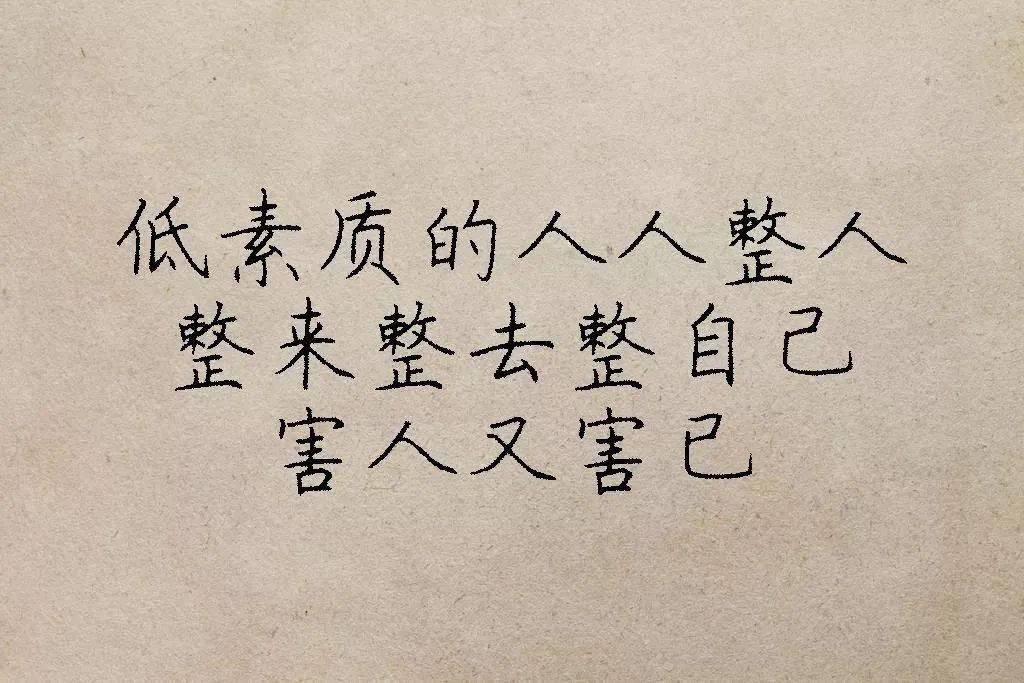 低素质的人人整人
整来整去整自己
害人又害已